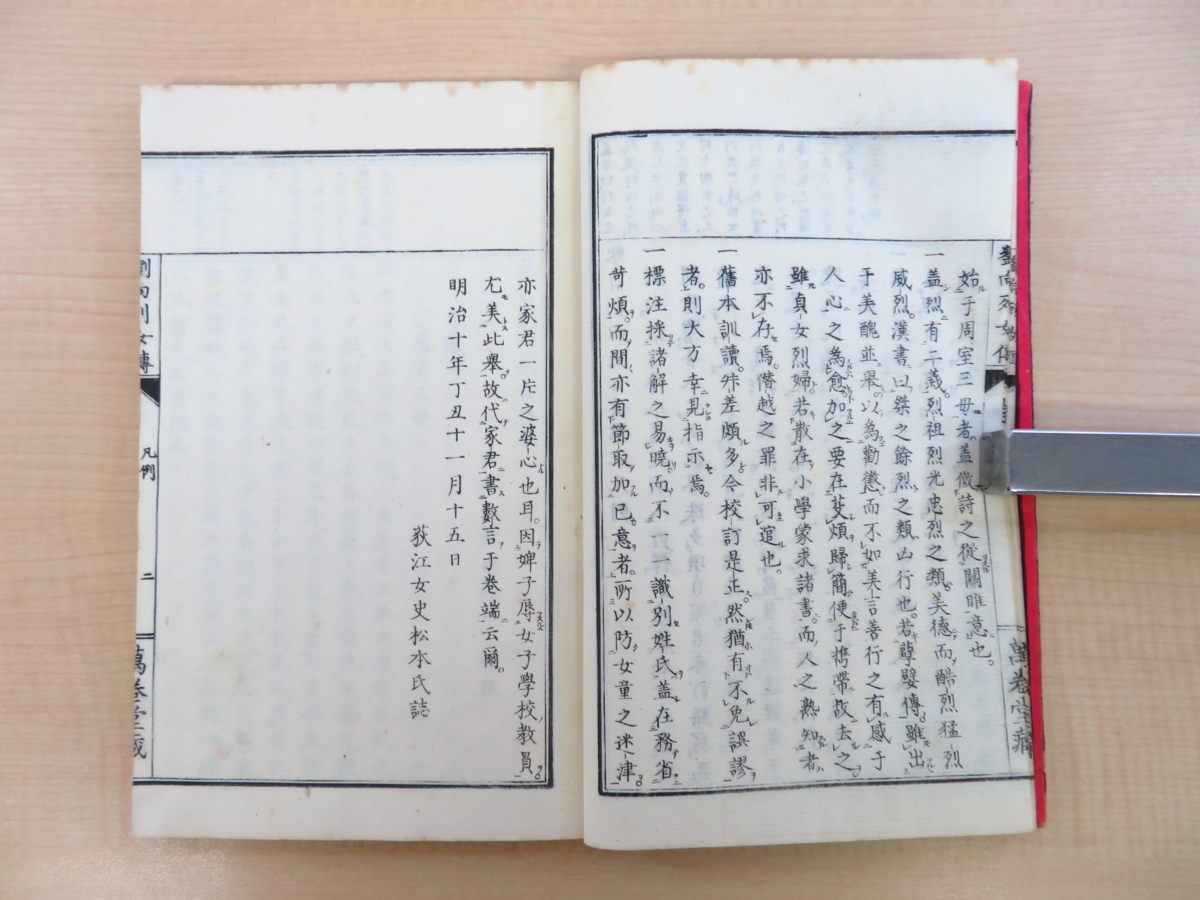 始于周室三母者蓋倣詩之從關雎意也。
一蓋烈有二義烈祖烈光忠烈之類美德而酷烈猛烈
威烈。漢書曰桀之餘烈之類凶行也。若孽嬖傳。雖出
于美醜並舉以為勸懲。而不如美言善行之有感于
人心之為愈加之要在芟煩歸簡便于携帶故去之。
雖貞女烈婦。若散在小學蒙求諸書。而人之熟知者
亦不存焉。僭越之罪非可逭也。
一舊本訓讀。舛差頗多今校訂是正。然猶有不免誤謬
者。則大方幸見指示焉。
一標注採諸解之易曉而不一一識別姓氏蓋在務省
苛煩。而間亦有節取加己意者。所以防女童之迷津
亦家君一片之婆心也耳。因婢子辱女子學校教員。
尤美此舉故代家君書數言于卷端云爾。
明治十年丁丑十一月十五日
荻江女史松本氏誌
劉向列女傳
凡例
二
萬卷堂藏